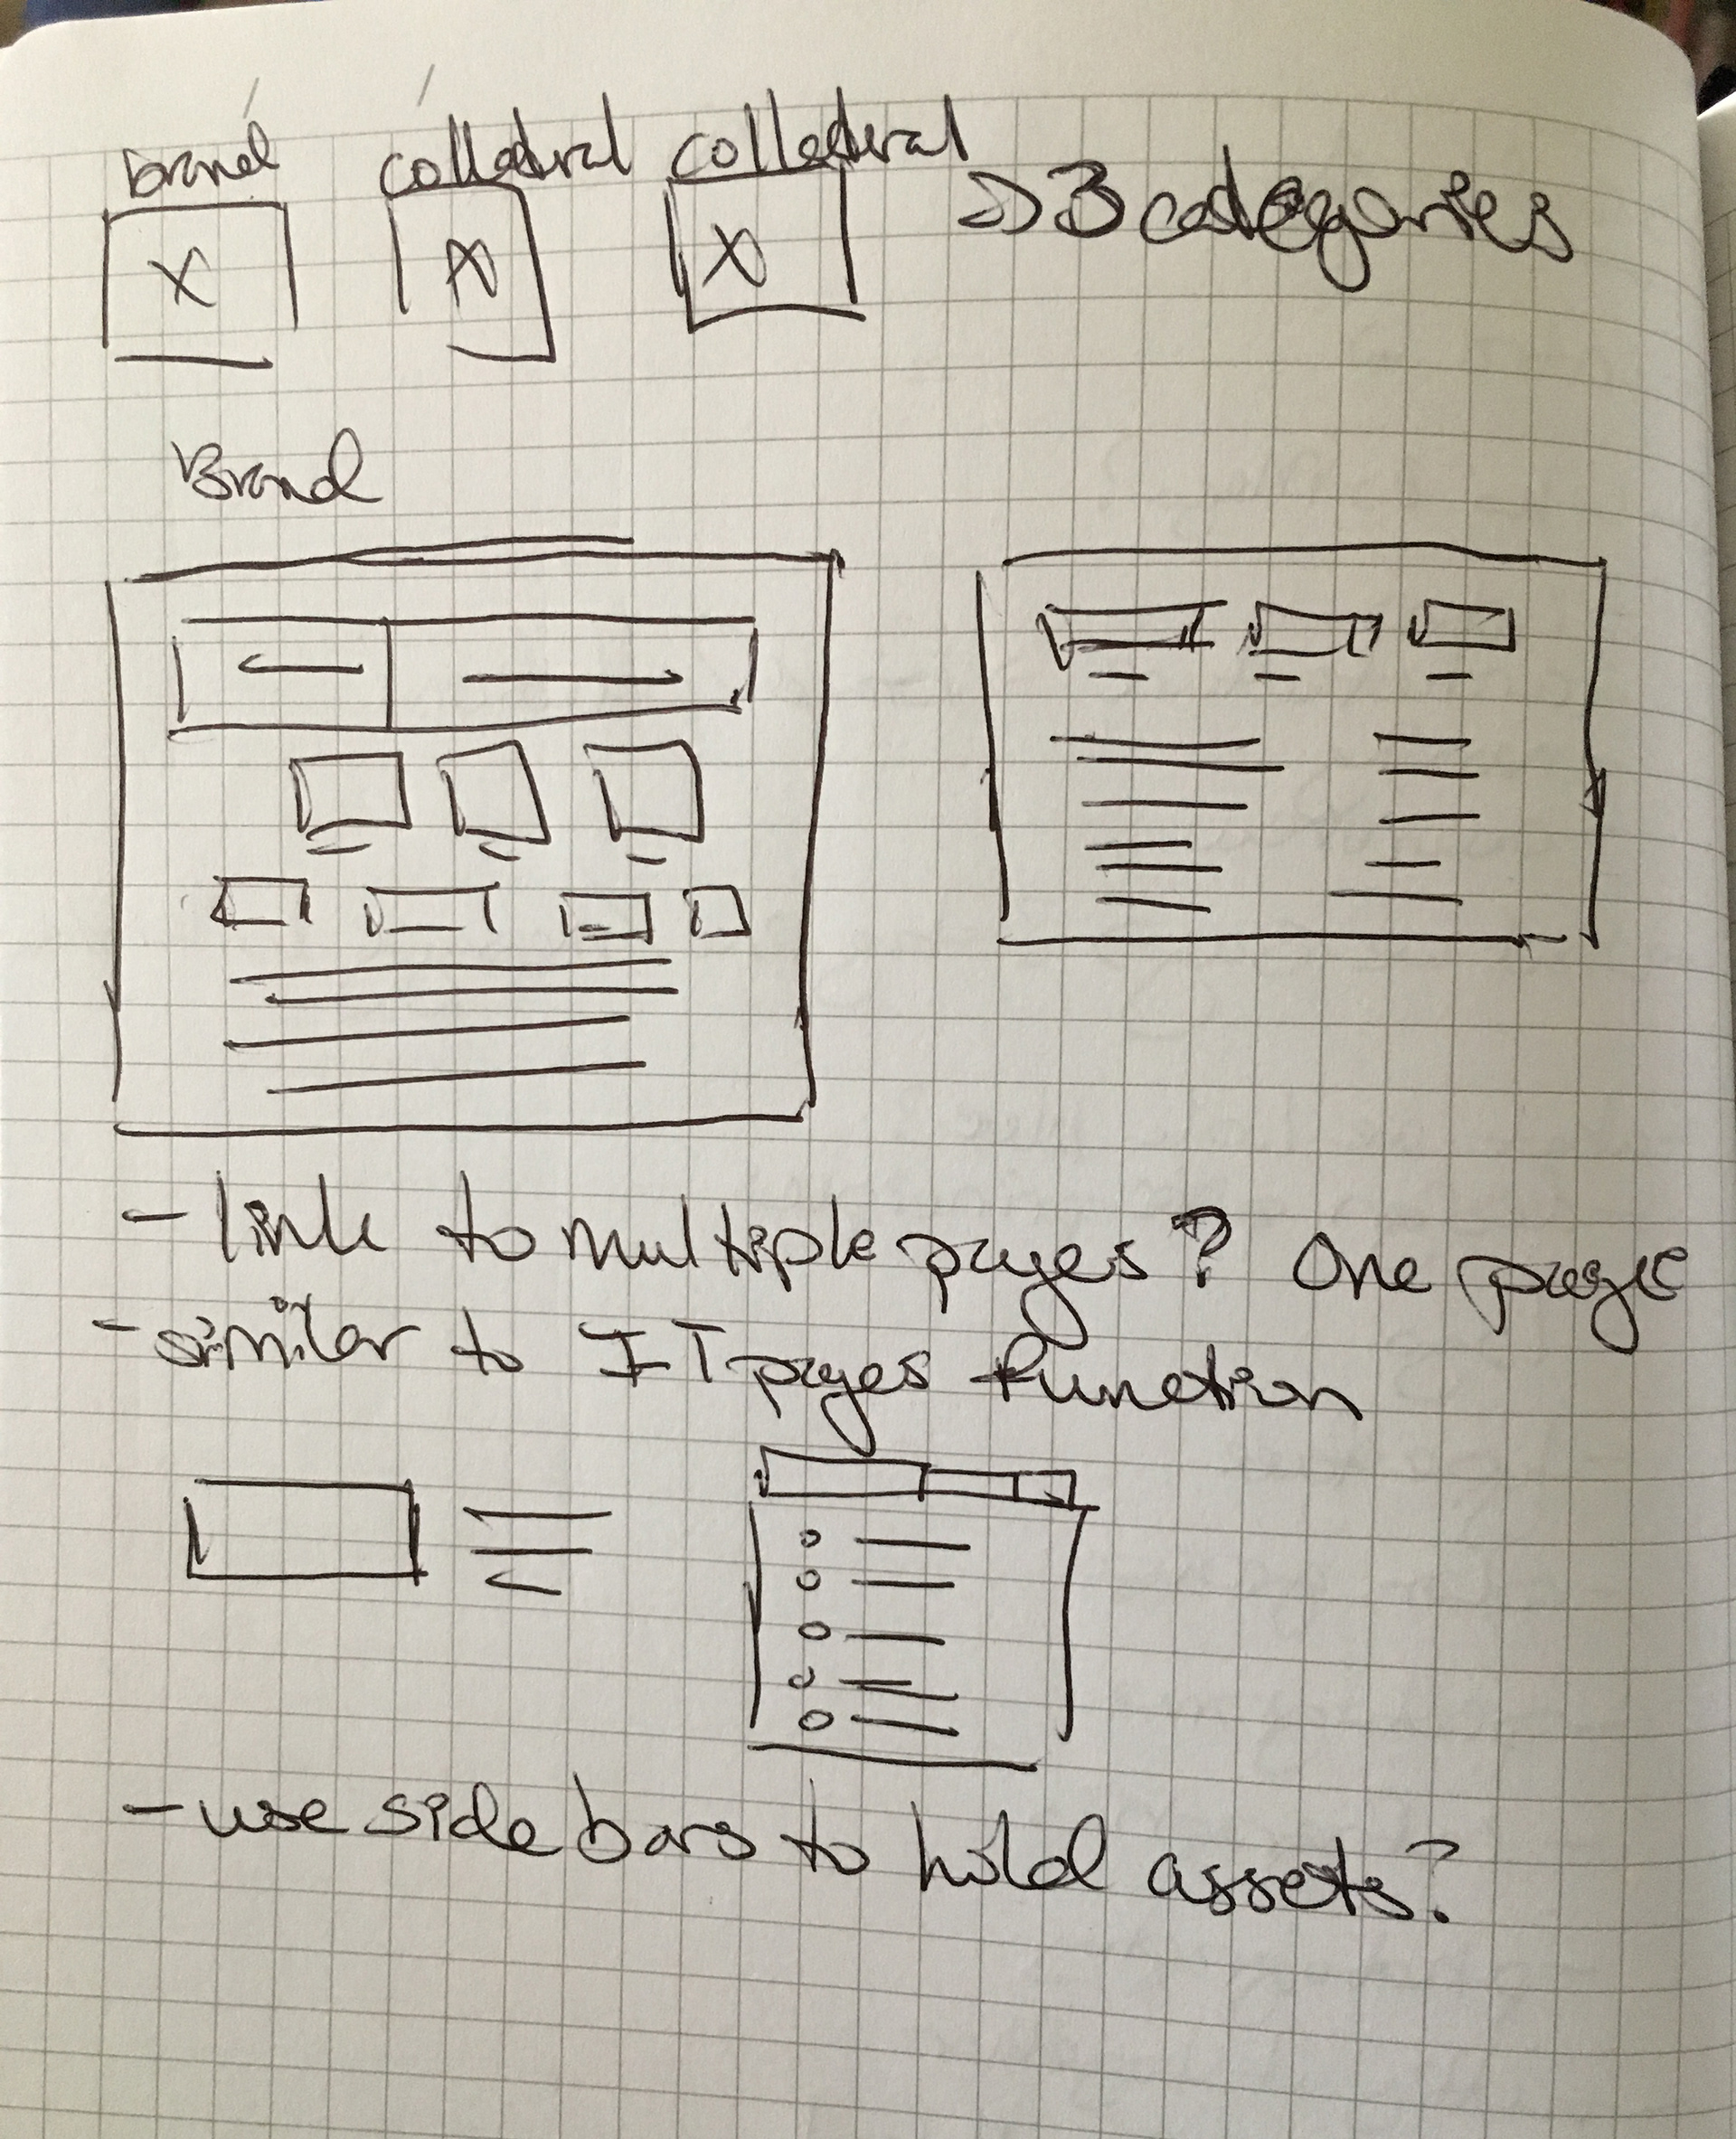 brand collateral collateral => 3 categories
Brand
- link to multiple pages? One page
- similar to IT pages function
- use side bars to hold assets?